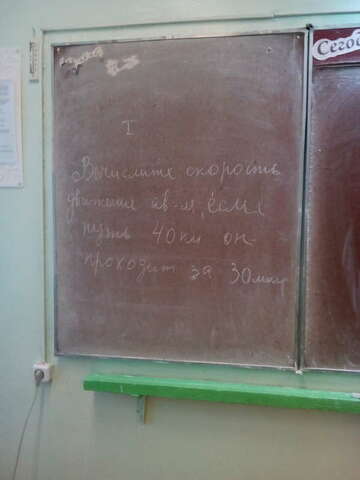 I
Вычислите скорость
движения ав-ля, если
путь 40 км он
проходит за 30 мин
Сегод